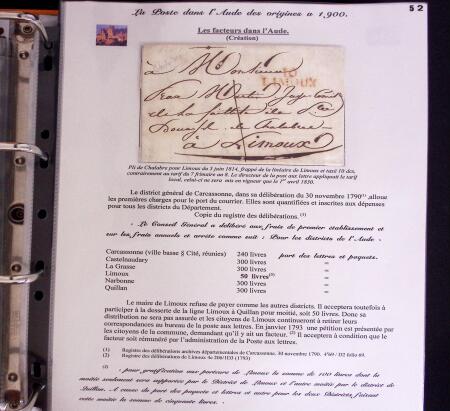 La Poste dans l'Aude des origines a 1,900.
52
Les facteurs dans l'Aude.
(Création)
à Monsieur
10
LIMOUX
Jean Martin Juge
de la faillite de
de Chalabre
à Limoux
Pli de Chalabre pour Limoux du 3 juin 1814, frappé de la linéaire de Limoux et taxé 10 des.
contrairement au tarif du 7 frimaire an 8. Le directeur de la post aux lettre appliquait le tarif
local, celui-ci ne sera mis en vigueur que le 1er avril 1830.
Le district général de Carcassonne, dans sa délibération du 30 novembre 1790 alloue
les premières charges pour le port du courrier. Elles sont quantifiés et inscrites aux dépenses
pour tous les districts du Département.
Copie du registre des délibérations. (1)
« Le Conseil Général a délibéré aux frais de premier établissement et
sur les frais annuels et arrête comme suit : Pour les districts de l'Aude »
Carcassonne (ville basse § Cité, réunies) 240 livres port des lettres et paquets.
Castelnaudary 300 livres "
La Grasse 300 livres "
Limoux 50 livres(2) "
Narbonne 300 livres "
Quillan 300 livres "
Le maire de Limoux refuse de payer comme les autres districts. Il acceptera toutefois à
participer à la desserte de la ligne Limoux à Quillan pour moitié, soit 50 livres. Donc sa
distribution ne sera pas assurée et les citoyens de Limoux continueront à retirer leurs
correspondances au bureau de la poste aux lettres. En janvier 1793 une pétition est présentée par
les citoyens de la commune, demandant qu'il y ait un facteur. (2) Il acceptera à condition que le
facteur soit rémunéré par l'administration de la Poste aux lettres.
(1) Registre des délibérations archives départementales de Carcassonne, 30 novembre 1790. D2 folio 69.
(2) Registre des délibérations de Limoux (1793)
« pour gratification aux porteurs de Limoux la somme de 100 livres dont la
moitié seulement sera supportée par le District de Limoux et l'autre moitié par le district de
Quillan. A cause du port des paquets et lettres et autre pour les deux Districts, faisant
cette moitié la somme de cinquante livres. »